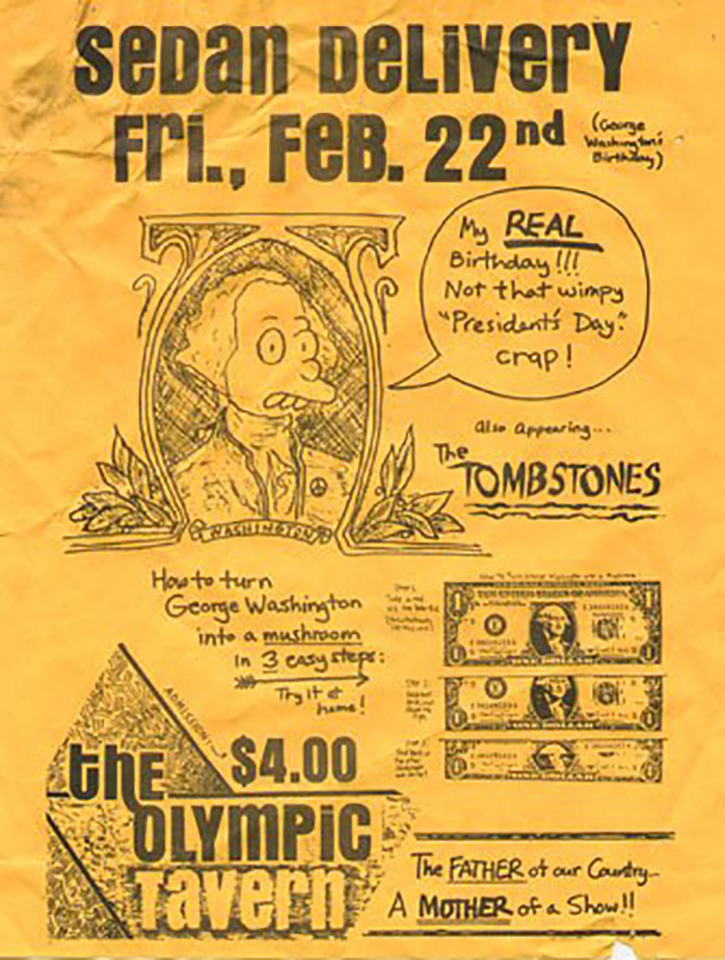 Sedan Delivery
Fri., Feb. 22nd
(George
Washington's
Birthday)
My REAL
Birthday!!!
Not that wimpy
"President's Day"
crap!
also appearing...
The
TOMBSTONES
WASHINGTON
How to turn
George Washington
into a mushroom
in 3 easy steps:
Try it at
home!
ADMISSION!
$4.00
the
OLYMPIC
Tavern
The FATHER of our Country...
A MOTHER of a Show!!